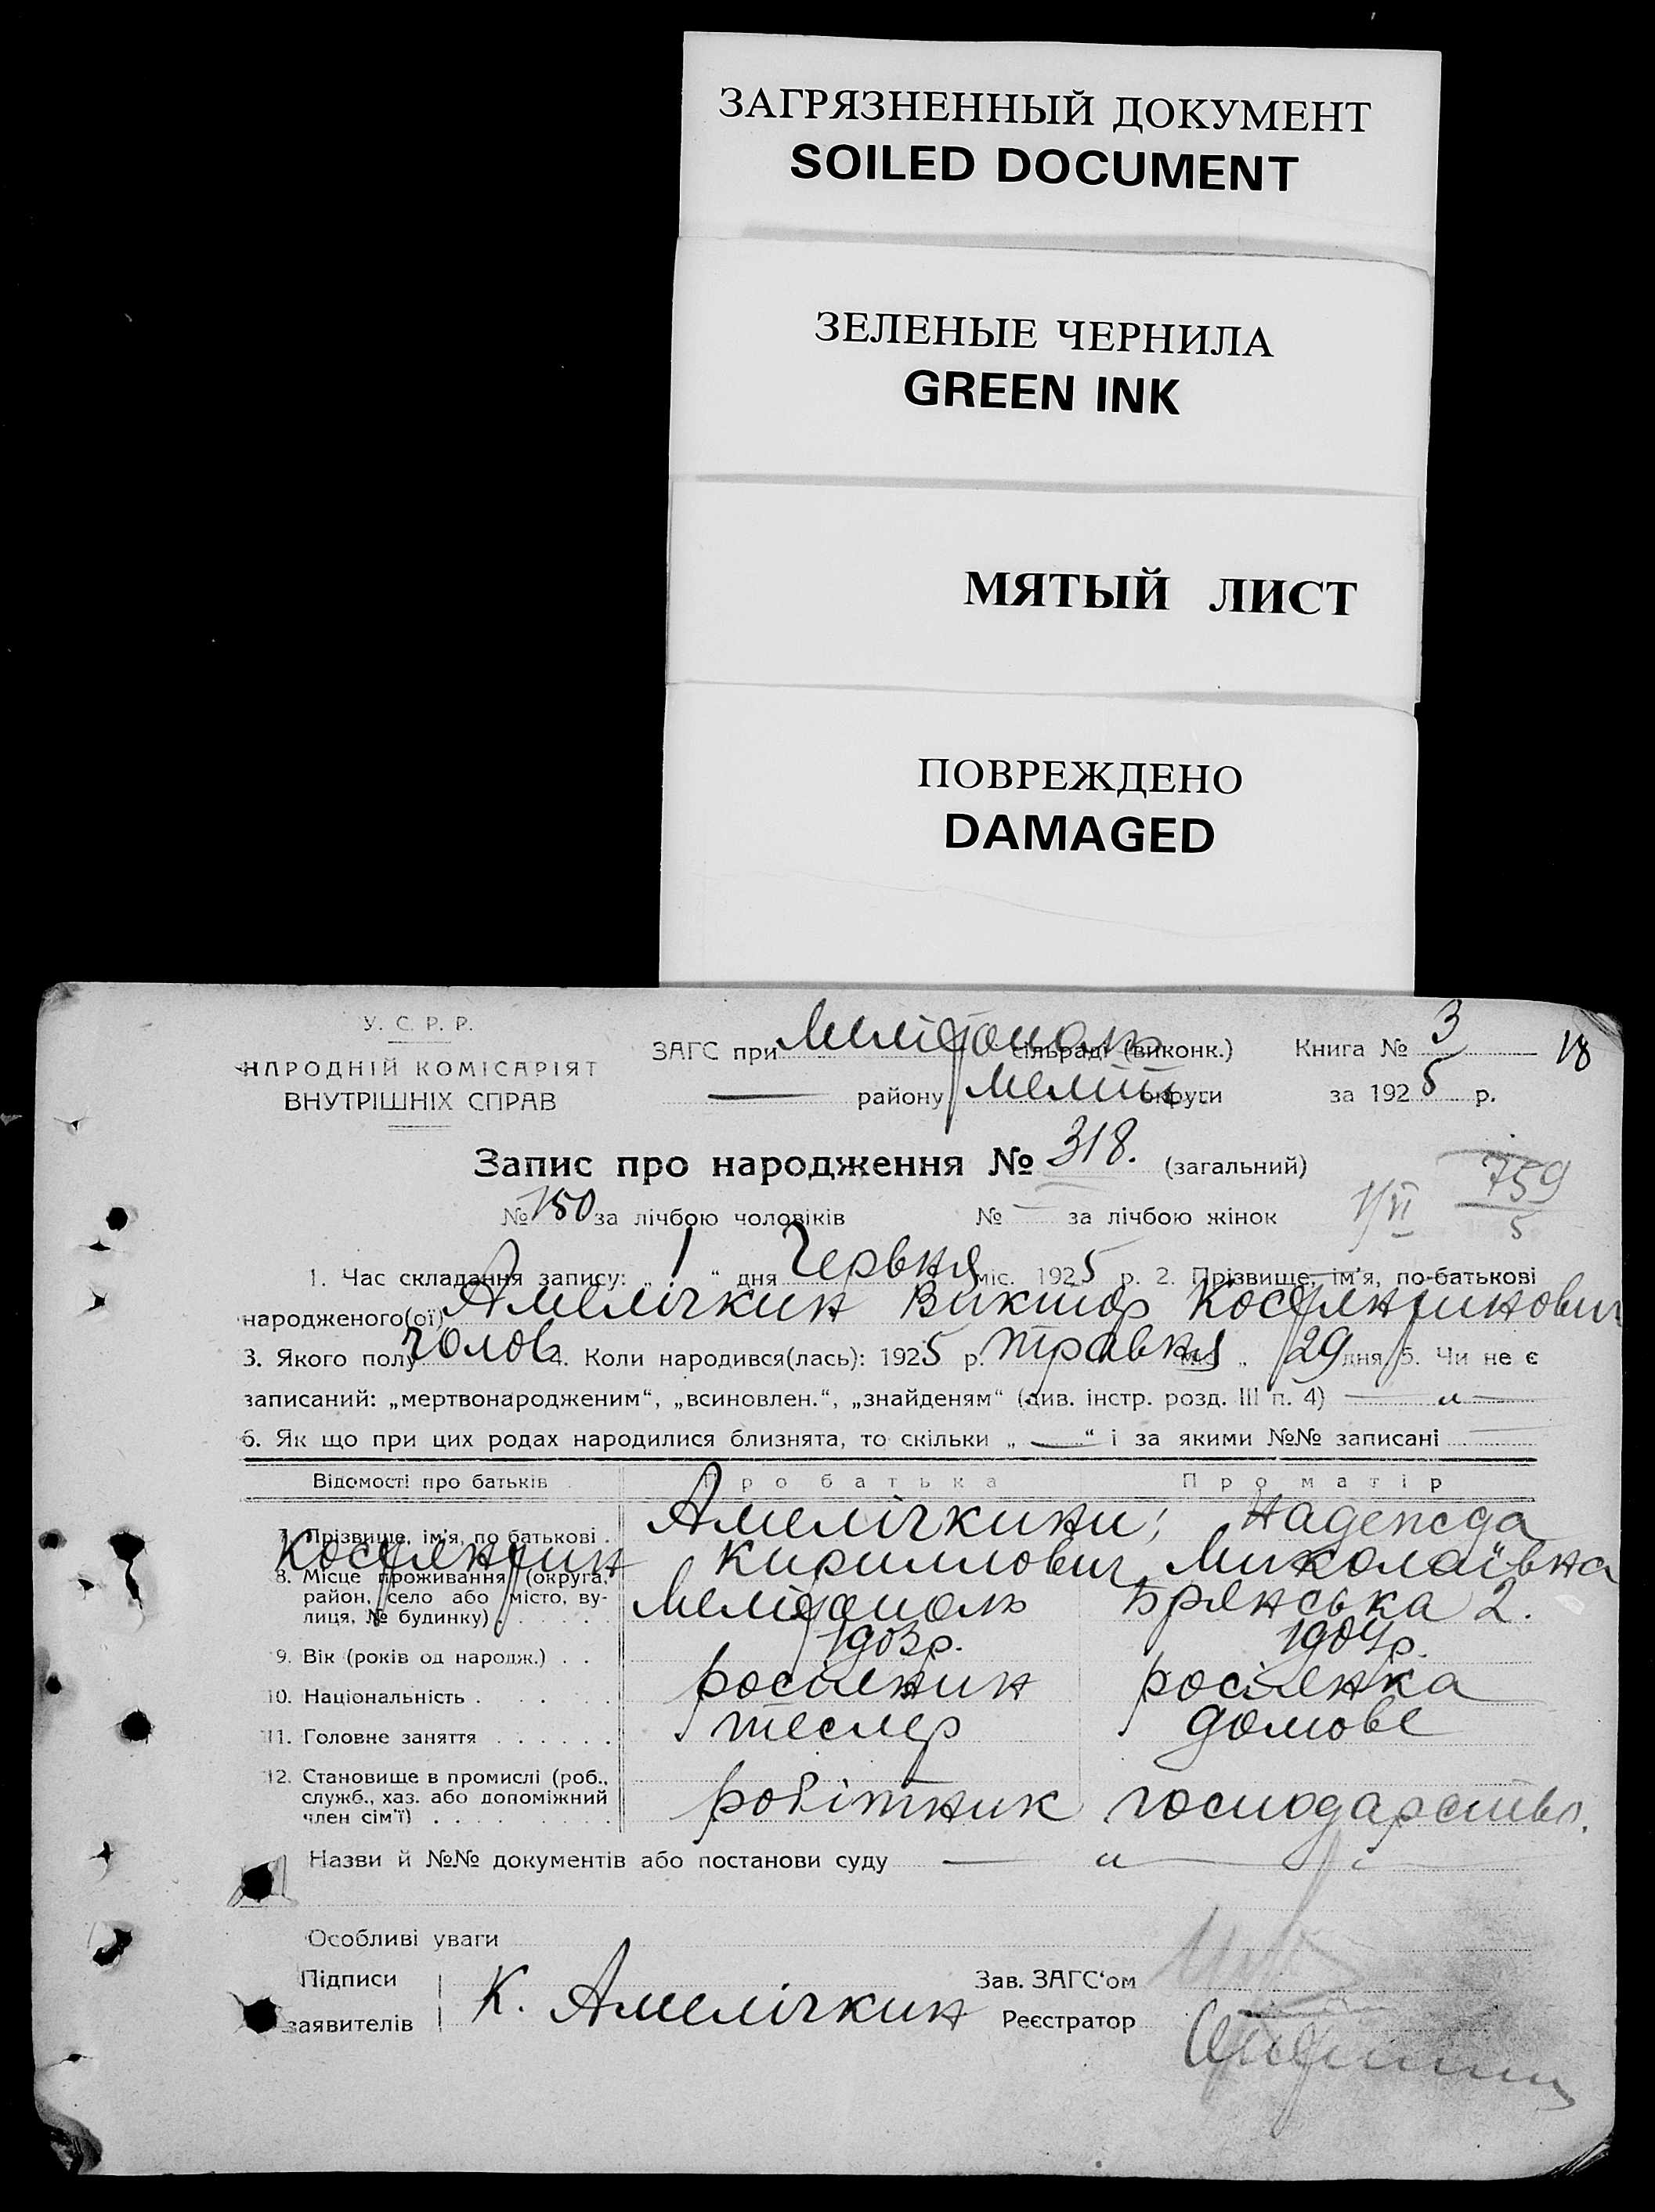 ЗАГРЯЗНЕННЫЙ ДОКУМЕНТ
SOILED DOCUMENT
ЗЕЛЕНЫЕ ЧЕРНИЛА
GREEN INK
МЯТЫЙ ЛИСТ
ПОВРЕЖДЕНО
DAMAGED
У. С. Р. Р.
НАРОДНІЙ КОМІСАРІЯТ
ВНУТРІШНІХ СПРАВ
ЗАГС при Мелітополь сільраді (виконк.) Книга № 3 18
району Меліт. округи за 1925 р.
Запис про народження № 318. (загальний)
№ 150 за лічбою чоловіків № — за лічбою жінок 1/VI 759/5
1. Час складання запису: „ 1 “ дня Червня міс. 1925 р. 2. Прізвище, ім'я, по-батькові
народженого(ої) Амелічкин Виктор Костянтинович
3. Якого полу чолов 4. Коли народився(лась): 1925 р. травня міс. „ 29 дня, 5. Чи не є
записаний: „мертвонародженим“, „всиновлен.“, „знайденям“ (див. інстр. розд. III п. 4) — „ —
6. Як що при цих родах народилися близнята, то скільки „ — “ і за якими №№ записані —
Відомості про батьків Про батька Про матір
7. Прізвище, ім'я, по батькові . Амелічкини; Надежда
Костянтин Кириллович Миколаївна
8. Місце проживання (округа, район, село або місто, вулиця, № будинку) . Мелітополь Брянська 2.
9. Вік (років од народж.) . . 1903р. 1904р.
10. Національність . . . . . росіянин росіянка
11. Головне заняття . . . . . . тесляр домове
12. Становище в промислі (роб., служб., хаз. або допоміжний член сім'ї) . . . . робітник господарство.
Назви й №№ документів або постанови суду — „ — „ —
Особливі уваги
Підписи
заявителів К. Амелічкин
Зав. ЗАГС'ом
Реєстратор